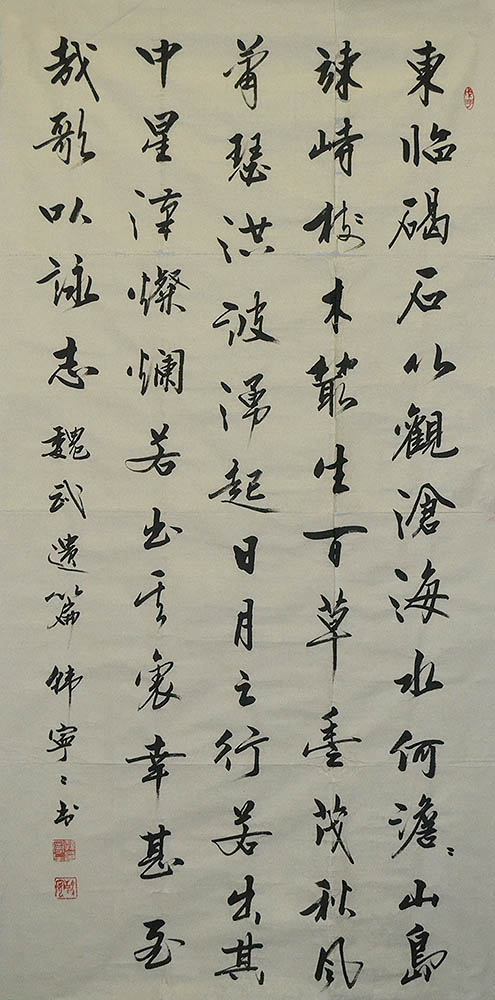 東临碣石以觀滄海水何澹〻山島
竦峙樹木叢生百草豊茂秋風
萧瑟洪波湧起日月之行若出其
中星漢燦爛若出其裏幸甚至
哉歌以詠志 魏武遺篇 韩寧〻书